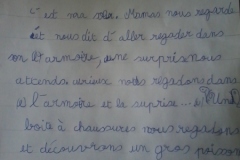 c'est sera vélo. Maman nous regarde
et nous dit d'aller regader dans
l'armoire, une surprise nous
attends. curieux nous regadons dans
l'armoire et la suprise ... une
boite à chaussures nous regadons
et découvrons un gros poisson